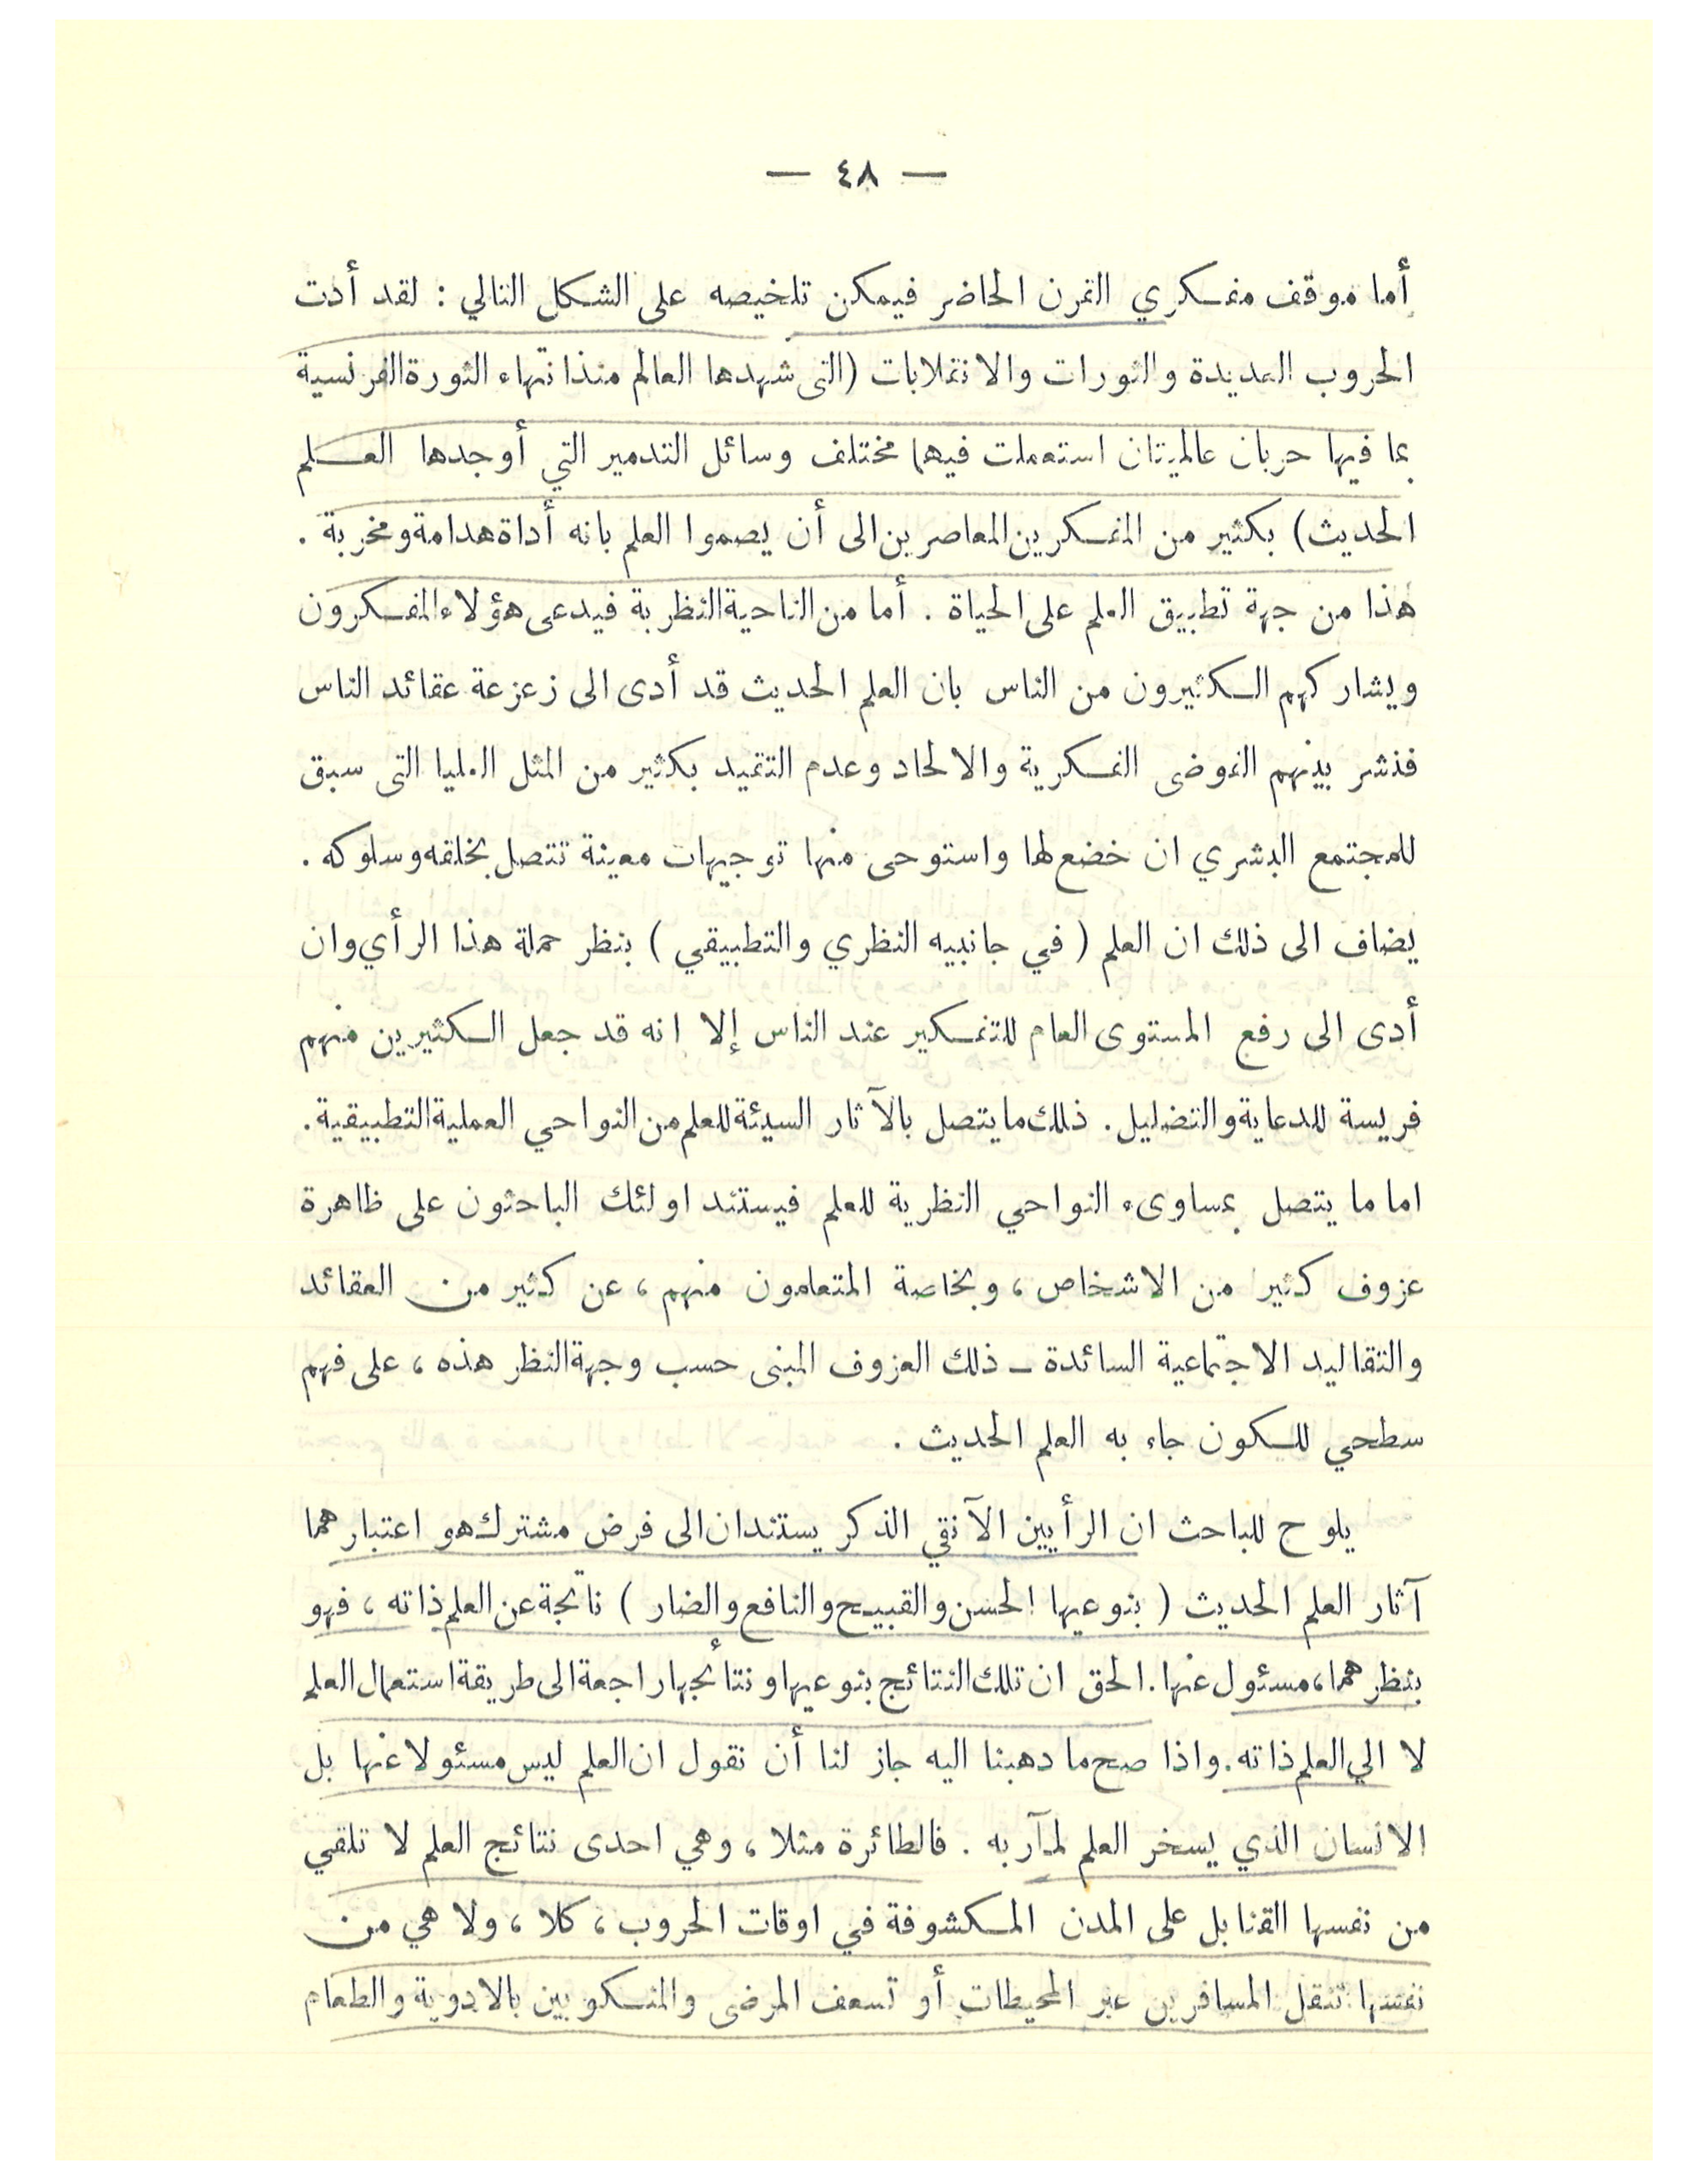 — ٤٨ —
أما موقف مفكري القرن الحاضر فيمكن تلخيصه على الشكل التالي : لقد أدت
الحروب العديدة والثورات والانقلابات (التى شهدها العالم منذ انتهاء الثورة الفرنسية
بما فيها حربان عالميتان استعملت فيهما مختلف وسائل التدمير التي أوجدها العلم
الحديث) بكثير من المفكرين المعاصرين الى أن يصموا العلم بانه أداة هدامة ومخربة .
هذا من جهة تطبيق العلم على الحياة . أما من الناحية النظرية فيدعى هؤلاء المفكرون
ويشاركهم الكثيرون من الناس بان العلم الحديث قد أدى الى زعزعة عقائد الناس
فنشر بينهم الفوضى الفكرية والالحاد وعدم التقيد بكثير من المثل العليا التى سبق
للمجتمع البشري ان خضع لها واستوحى منها توجيهات معينة تتصل بخلقه وسلوكه .
يضاف الى ذلك ان العلم ( في جانبيه النظري والتطبيقي ) بنظر حملة هذا الرأي وان
أدى الى رفع المستوى العام للتفكير عند الناس إلا انه قد جعل الكثيرين منهم
فريسة للدعاية والتضليل . ذلك ما يتصل بالآثار السيئة للعلم من النواحي العملية التطبيقية .
اما ما يتصل بمساوىء النواحي النظرية للعلم فيستند اولئك الباحثون على ظاهرة
عزوف كثير من الاشخاص ، وبخاصة المتعلمون منهم ، عن كثير من العقائد
والتقاليد الاجتماعية السائدة ـ ذلك العزوف المبنى حسب وجهة النظر هذه ، على فهم
سطحي للكون جاء به العلم الحديث .
يلوح للباحث ان الرأيين الآنقي الذكر يستندان الى فرض مشترك هو اعتبارهما
آثار العلم الحديث ( بنوعيها الحسن والقبيح والنافع والضار ) ناتجة عن العلم ذاته ، فهو
بنظرهما، مسئول عنها . الحق ان تلك النتائج بنوعيها ونتائجها راجعة الى طريقة استعمال العلم
لا الي العلم ذاته . واذا صح ما دهبنا اليه جاز لنا أن نقول ان العلم ليس مسئولا عنها بل
الانسان الذي يسخر العلم لمآربه . فالطائرة مثلا ، وهي احدى نتائج العلم لا تلقي
من نفسها القنابل على المدن المكشوفة في اوقات الحروب ، كلا ، ولا هي من
نفسها تنقل المسافرين عبر المحيطات أو تسعف المرضى والمنكوبين بالادوية والطعام